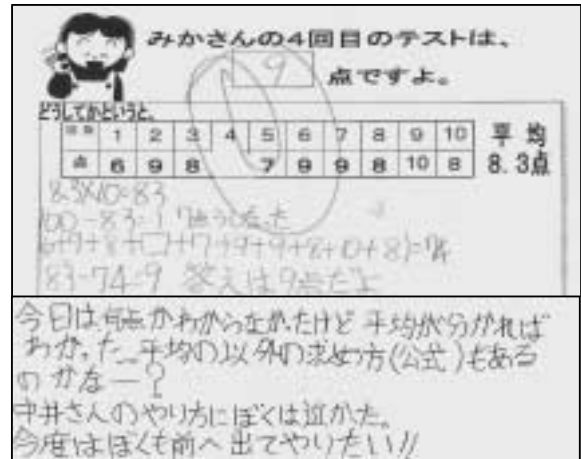 みかさんの4回目のテストは、
9 点ですよ。
どうしてかというと、
回数 1 2 3 4 5 6 7 8 9 10 平均
点 6 9 8 7 9 9 8 10 8 8.3点
8.3×10=83
100-83=1 点
6+9+8+□+7+9+9+8+10+8)=74
83-74=9 答えは9点だよ
今日は何点かわからなかったけど平均が分かれば
わかった。平均の以外の求め方(公式)もある
のかなー?
中井さんのやり方にぼくは近かった。
今度はぼくも前へ出てやりたい!!